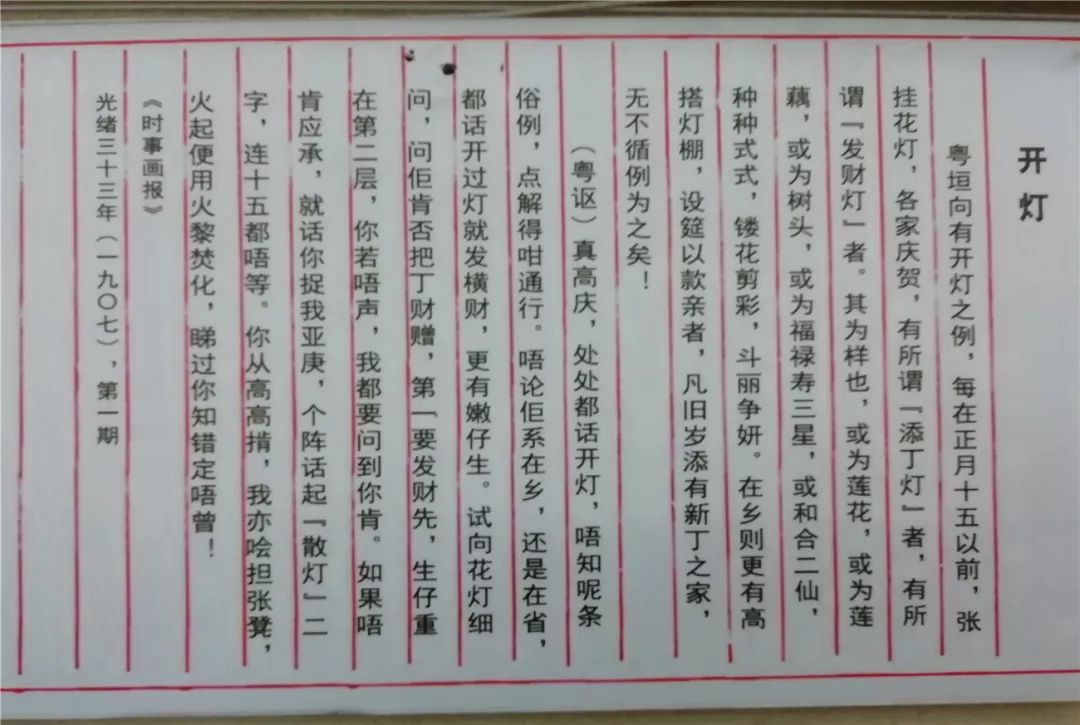 开灯
粤垣向有开灯之例，每在正月十五以前，张
挂花灯，各家庆贺，有所谓『添丁灯』者，有所
谓『发财灯』者。其为样也，或为莲花，或为莲
藕，或为树头，或为福禄寿三星，或和合二仙，
种种式式，镂花剪彩，斗丽争妍。在乡则更有高
搭灯棚，设筵以款亲者，凡旧岁添有新丁之家，
无不循例为之矣！
（粤讴）真高庆，处处都话开灯，唔知呢条
俗例，点解得咁通行。唔论佢系在乡，还是在省，
都话开过灯就发横财，更有嫩仔生。试向花灯细
问，问佢肯否把丁财赠，第一要发财先，生仔重
在第二层，你若唔声，我都要问到你肯。如果唔
肯应承，就话你捉我亚庚，个阵话起『散灯』二
字，连十五都唔等。你从高高掯，我亦唫担张凳，
火起便用火黎焚化，睇过你知错定唔曾！
《时事画报》
光绪三十三年（一九〇七），第一期